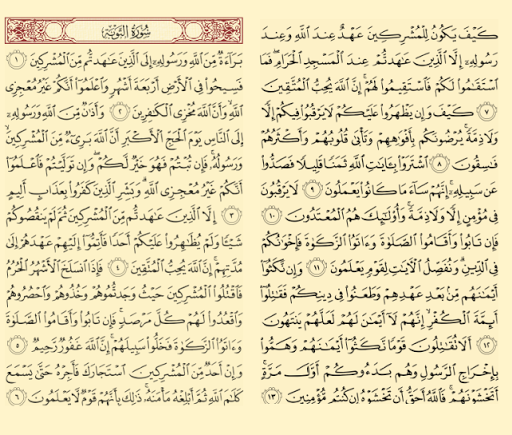 سُورَةُ التَّوْبَةِ
بَرَآءَةٌ مِّنَ ٱللَّهِ وَرَسُولِهِۦٓ إِلَى ٱلَّذِينَ عَـٰهَدتُّم مِّنَ ٱلْمُشْرِكِينَ ١
فَسِيحُوا۟ فِى ٱلْأَرْضِ أَرْبَعَةَ أَشْهُرٍ وَٱعْلَمُوٓا۟ أَنَّكُمْ غَيْرُ مُعْجِزِى
ٱللَّهِ ۙ وَأَنَّ ٱللَّهَ مُخْزِى ٱلْكَـٰفِرِينَ ٢ وَأَذَٰنٌ مِّنَ ٱللَّهِ وَرَسُولِهِۦٓ
إِلَى ٱلنَّاسِ يَوْمَ ٱلْحَجِّ ٱلْأَكْبَرِ أَنَّ ٱللَّهَ بَرِىٓءٌ مِّنَ ٱلْمُشْرِكِينَ ۙ
وَرَسُولُهُۥ ۚ فَإِن تُبْتُمْ فَهُوَ خَيْرٌ لَّكُمْ ۖ وَإِن تَوَلَّيْتُمْ فَٱعْلَمُوٓا۟
أَنَّكُمْ غَيْرُ مُعْجِزِى ٱللَّهِ ۗ وَبَشِّرِ ٱلَّذِينَ كَفَرُوا۟ بِعَذَابٍ أَلِيمٍ
٣ إِلَّا ٱلَّذِينَ عَـٰهَدتُّم مِّنَ ٱلْمُشْرِكِينَ ثُمَّ لَمْ يَنقُصُوكُمْ
شَيْـًٔا وَلَمْ يُظَـٰهِرُوا۟ عَلَيْكُمْ أَحَدًا فَأَتِمُّوٓا۟ إِلَيْهِمْ عَهْدَهُمْ إِلَىٰ
مُدَّتِهِمْ ۚ إِنَّ ٱللَّهَ يُحِبُّ ٱلْمُتَّقِينَ ٤ فَإِذَا ٱنسَلَخَ ٱلْأَشْهُرُ ٱلْحُرُمُ
فَٱقْتُلُوا۟ ٱلْمُشْرِكِينَ حَيْثُ وَجَدتُّمُوهُمْ وَخُذُوهُمْ وَٱحْصُرُوهُمْ
وَٱقْعُدُوا۟ لَهُمْ كُلَّ مَرْصَدٍ ۚ فَإِن تَابُوا۟ وَأَقَامُوا۟ ٱلصَّلَوٰةَ
وَءَاتَوُا۟ ٱلزَّكَوٰةَ فَخَلُّوا۟ سَبِيلَهُمْ ۚ إِنَّ ٱللَّهَ غَفُورٌ رَّحِيمٌ ٥
وَإِنْ أَحَدٌ مِّنَ ٱلْمُشْرِكِينَ ٱسْتَجَارَكَ فَأَجِرْهُ حَتَّىٰ يَسْمَعَ
كَلَـٰمَ ٱللَّهِ ثُمَّ أَبْلِغْهُ مَأْمَنَهُۥ ۚ ذَٰلِكَ بِأَنَّهُمْ قَوْمٌ لَّا يَعْلَمُونَ ٦
كَيْفَ يَكُونُ لِلْمُشْرِكِينَ عَهْدٌ عِندَ ٱللَّهِ وَعِندَ
رَسُولِهِۦٓ إِلَّا ٱلَّذِينَ عَـٰهَدتُّمْ عِندَ ٱلْمَسْجِدِ ٱلْحَرَامِ ۖ فَمَا
ٱسْتَقَـٰمُوا۟ لَكُمْ فَٱسْتَقِيمُوا۟ لَهُمْ ۚ إِنَّ ٱللَّهَ يُحِبُّ ٱلْمُتَّقِينَ
٧ كَيْفَ وَإِن يَظْهَرُوا۟ عَلَيْكُمْ لَا يَرْقُبُوا۟ فِيكُمْ إِلًّا
وَلَا ذِمَّةً ۚ يُرْضُونَكُم بِأَفْوَٰهِهِمْ وَتَأْبَىٰ قُلُوبُهُمْ وَأَكْثَرُهُمْ
فَـٰسِقُونَ ٨ ٱشْتَرَوْا۟ بِـَٔايَـٰتِ ٱللَّهِ ثَمَنًا قَلِيلًا فَصَدُّوا۟
عَن سَبِيلِهِۦٓ ۚ إِنَّهُمْ سَآءَ مَا كَانُوا۟ يَعْمَلُونَ ٩ لَا يَرْقُبُونَ
فِى مُؤْمِنٍ إِلًّا وَلَا ذِمَّةً ۚ وَأُو۟لَـٰٓئِكَ هُمُ ٱلْمُعْتَدُونَ ١٠
فَإِن تَابُوا۟ وَأَقَامُوا۟ ٱلصَّلَوٰةَ وَءَاتَوُا۟ ٱلزَّكَوٰةَ فَإِخْوَٰنُكُمْ
فِى ٱلدِّينِ ۗ وَنُفَصِّلُ ٱلْـَٔايَـٰتِ لِقَوْمٍ يَعْلَمُونَ ١١ وَإِن نَّكَثُوٓا۟
أَيْمَـٰنَهُم مِّنۢ بَعْدِ عَهْدِهِمْ وَطَعَنُوا۟ فِى دِينِكُمْ فَقَـٰتِلُوٓا۟
أَئِمَّةَ ٱلْكُفْرِ ۙ إِنَّهُمْ لَآ أَيْمَـٰنَ لَهُمْ لَعَلَّهُمْ يَنتَهُونَ
١٢ أَلَا تُقَـٰتِلُونَ قَوْمًا نَّكَثُوٓا۟ أَيْمَـٰنَهُمْ وَهَمُّوا۟
بِإِخْرَاجِ ٱلرَّسُولِ وَهُم بَدَءُوكُمْ أَوَّلَ مَرَّةٍ ۚ
أَتَخْشَوْنَهُمْ ۚ فَٱللَّهُ أَحَقُّ أَن تَخْشَوْهُ إِن كُنتُم مُّؤْمِنِينَ ١٣